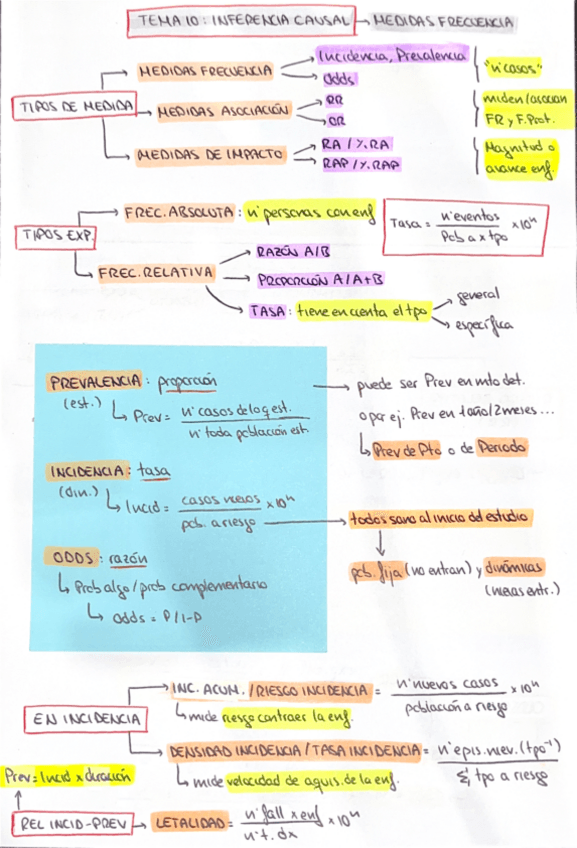 TEMA 10: INFERENCIA CAUSAL → MEDIDAS FRECUENCIA
TIPOS DE MEDIDA
MEDIDAS FRECUENCIA → Incidencia, Prevalencia
Odds
"nº casos"
MEDIDAS ASOCIACIÓN → RR
OR
miden/asocian
FR y F.Prot.
MEDIDAS DE IMPACTO → RA / %RA
RAP / %RAP
Magnitud o
avance enf.
TIPOS EXP.
FREC. ABSOLUTA: nº personas con enf
Tasa = nº eventos / Pob a x tpo x 10ⁿ
FREC. RELATIVA → RAZÓN A/B
PROPORCIÓN A/A+B
TASA: tiene en cuenta el tpo → general
específica
PREVALENCIA: proporción → puede ser Prev en mto det.
(est.)
Prev = nº casos de lo q est. / nº toda población est.
o por ej. Prev en 1 año/2 meses...
Prev de Pto o de Periodo
INCIDENCIA: tasa
(din.)
Incid = casos nuevos / pob. a riesgo x 10ⁿ
todos sano al inicio del estudio
pob. fija (no entran) y dinámicas
(nuevas entr.)
ODDS: razón
Prob algo/prob complementario
odds = P/1-P
EN INCIDENCIA
INC. ACUM. / RIESGO INCIDENCIA = nº nuevos casos / población a riesgo x 10ⁿ
mide riesgo contraer la enf.
DENSIDAD INCIDENCIA / TASA INCIDENCIA = nº epis. nuev. (tpo⁻¹) / Σ tpo a riesgo
mide velocidad de aquis. de la enf.
Prev = Incid x duración
REL INCID-PREV → LETALIDAD = nº fall x enf / nº t. dx x 10ⁿ